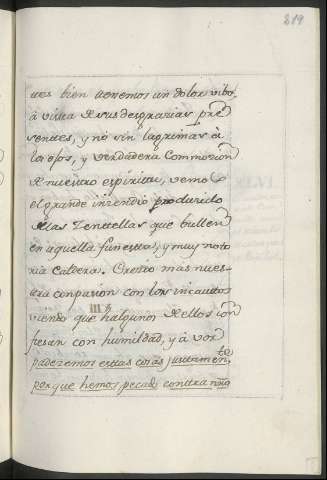 219
ues bien tenemos un dolor vibo,
à vista de sus desgracias pre
sentes, y nó sin lagrimas à
los ojos, y verdadera Commocion
de nuestro espiritu, vemos
el grande incendio producido
de las Zentellas que bullen
en aquella funesta, y muy noto
ria Caldera. Crecio mas nues-
tra conpasion con los incautos
viendo que halgunos de ellos con
fiesan con humildad, y à voz
padezemos estas cosas justamen.te
porque hemos pecado contra nrô